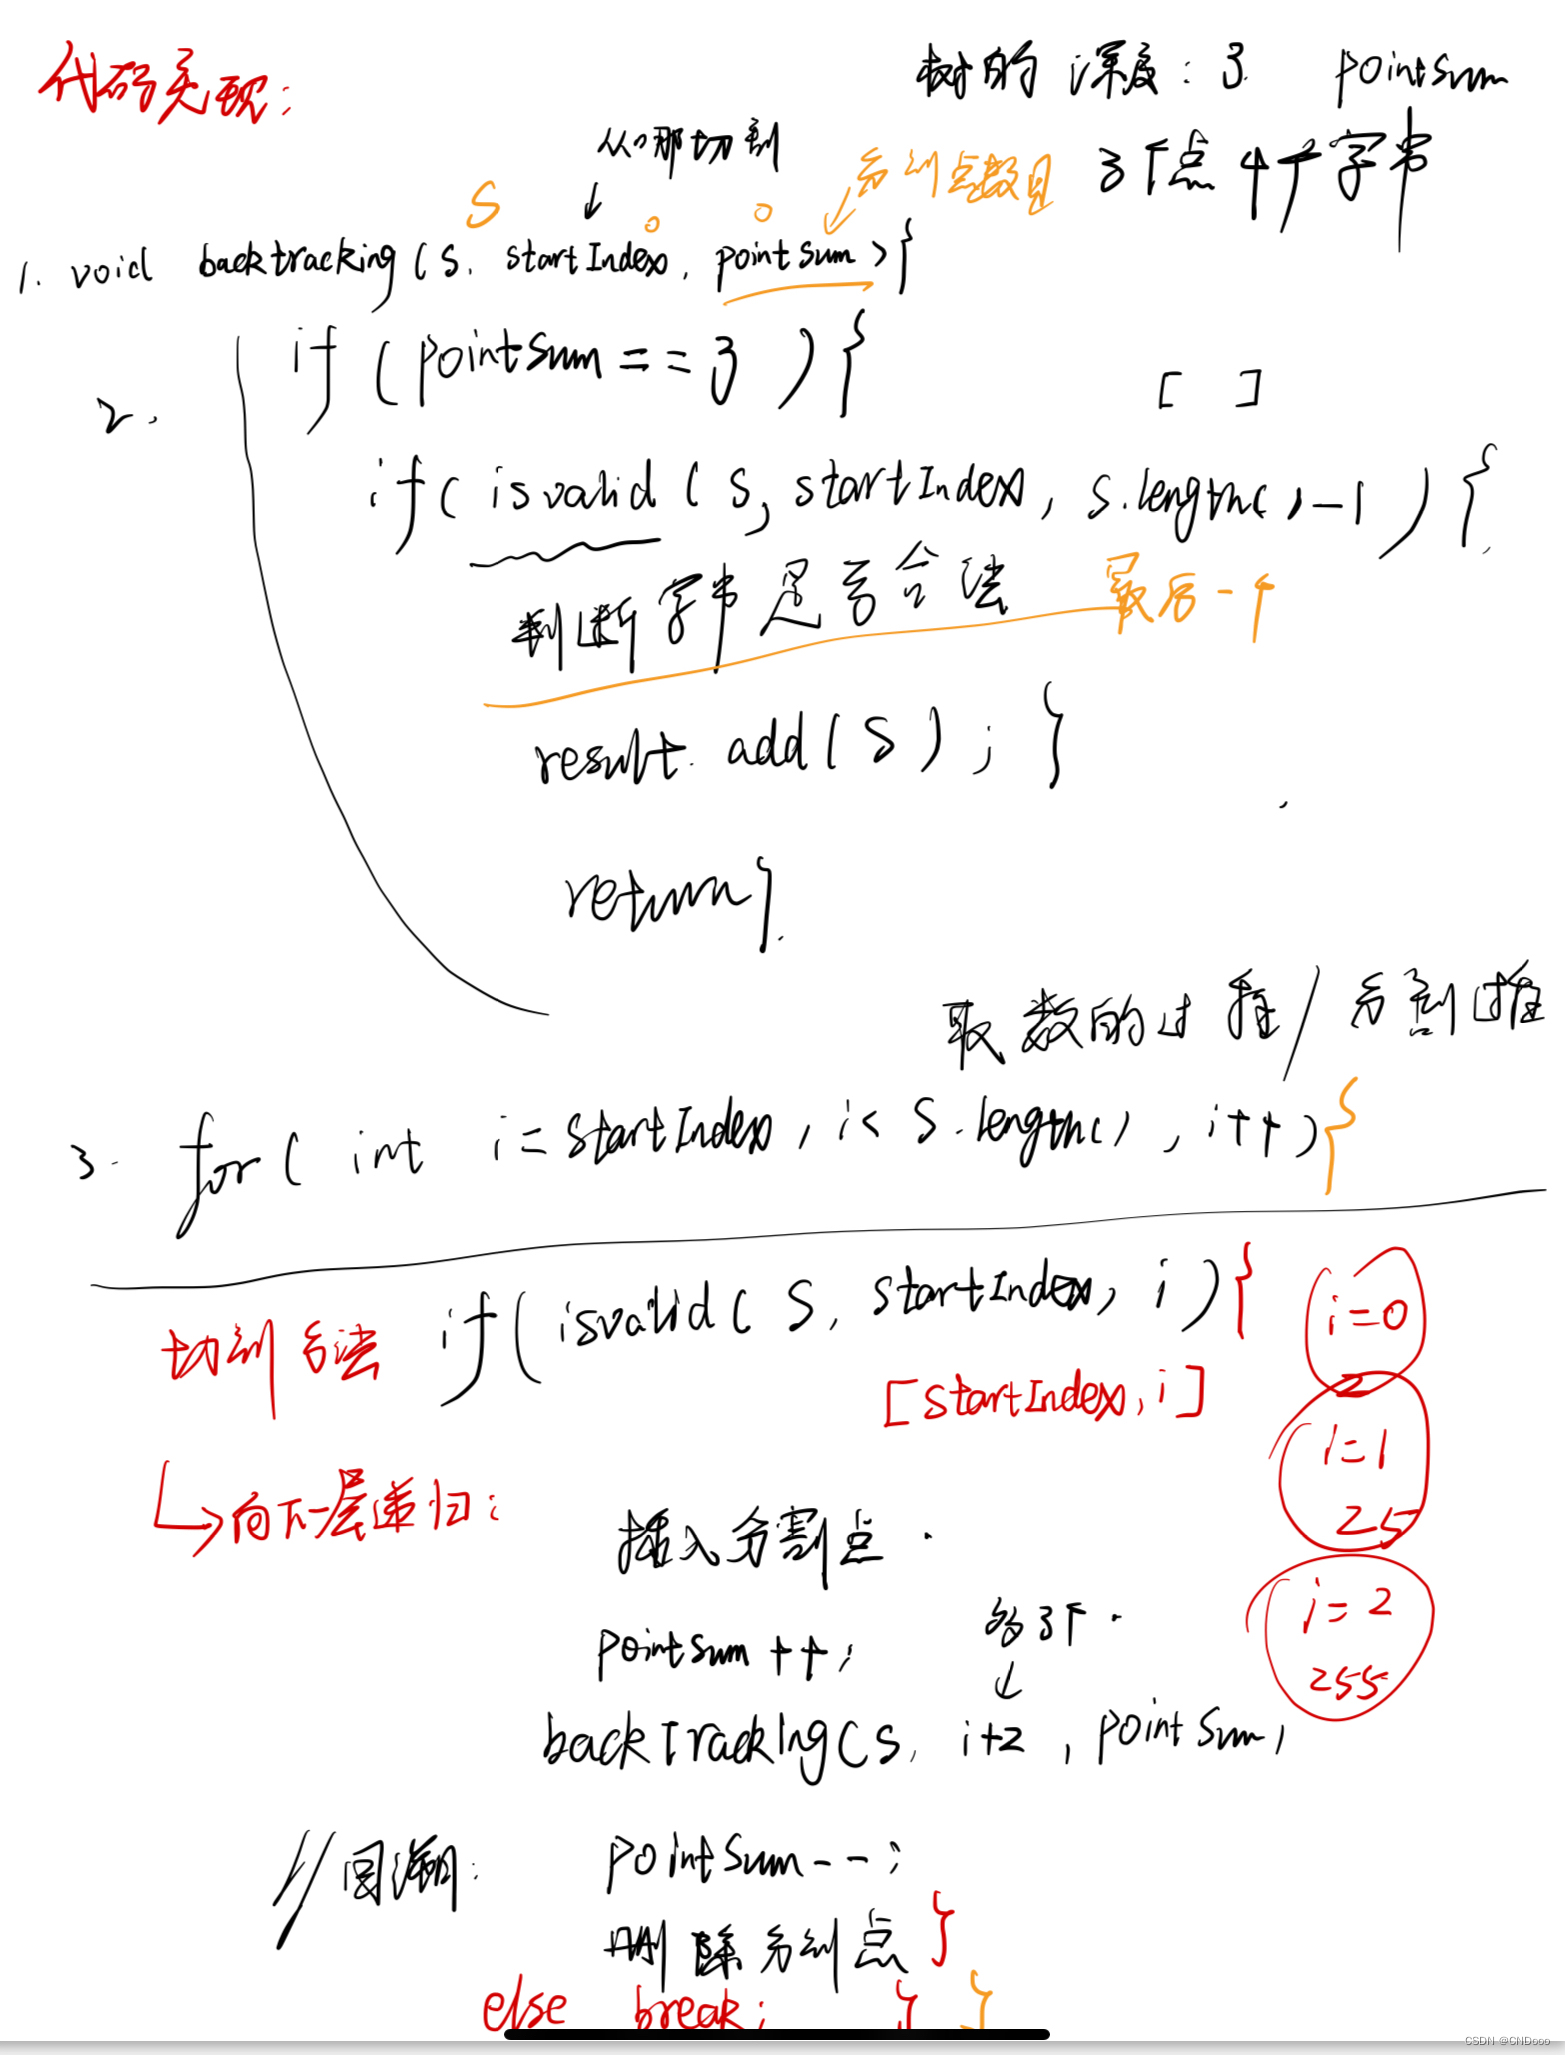 代码实现:
树的深度: 3 pointSum
从哪切割
分割点数目
3个点 4个字串
S
1. void backtracking(S, startIndex, pointSum){
2.
if (pointSum == 3 ){
[ ]
if( isvalid ( S, startIndex, s.length()-1 ) {
判断字串是否合法 最后一个
result. add( S ) ; }
return}
取数的过程/分割过程
3. for( int i = startIndex, i< S.length() , i++){
切割方法 if( isvalid( S, startIndex, i ){
i=0
2
[startIndex, i]
i=1
25
↳向下一层递归:
插入分割点 .
i=2
255
pointSum ++;
多了个 .
backTracking(S, i+2 , pointSum)
//回溯: pointSum--;
删除分割点 }
else break; } }
CSDN @CNDooo